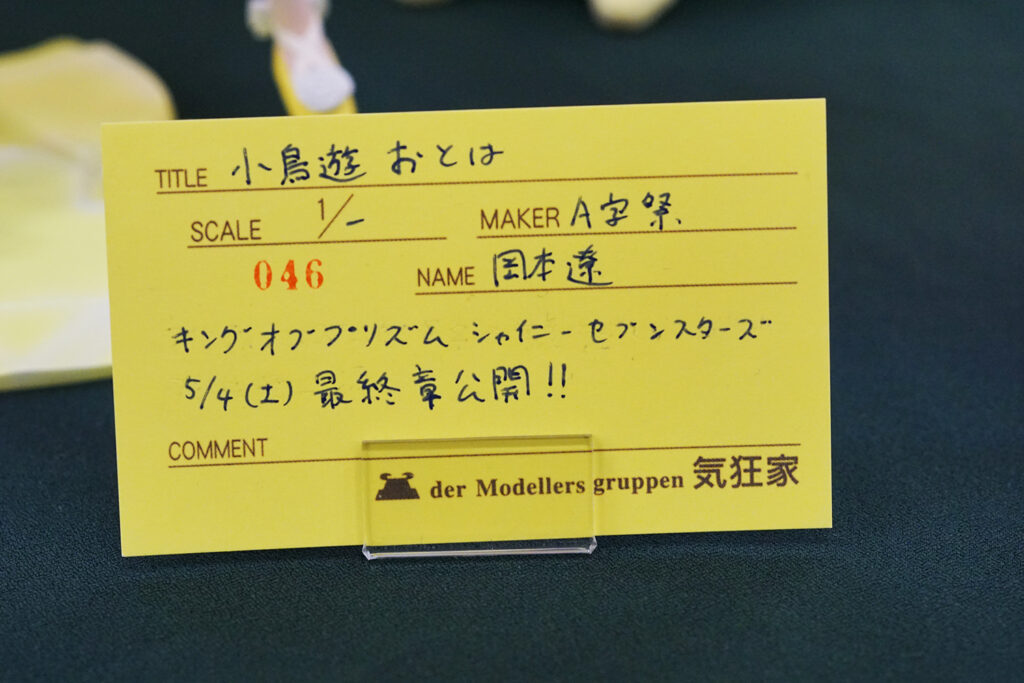 TITLE 小鳥遊 おとは
SCALE 1/- MAKER A字祭
046 NAME 岡本遼
キングオブプリズム シャイニーセブンスターズ
5/4(土) 最終章公開!!
COMMENT
der Modellers gruppen 気狂家